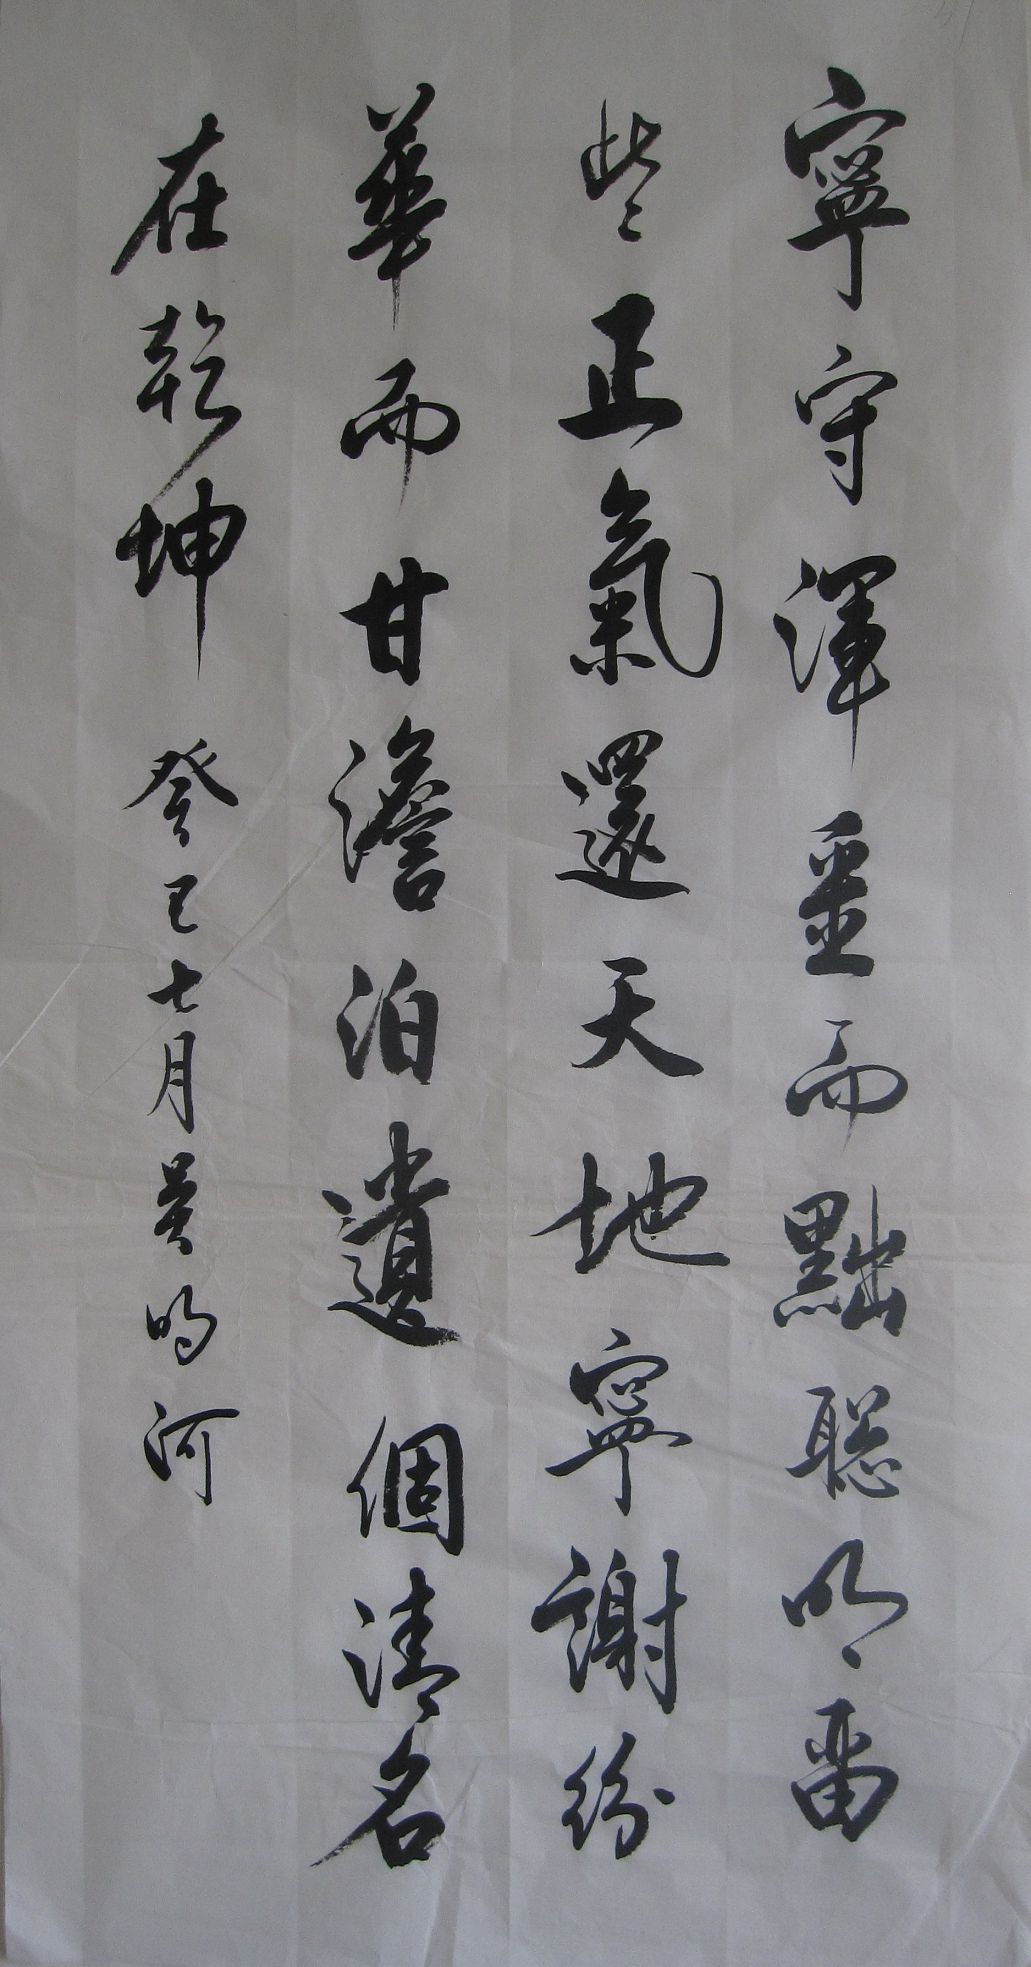 寧守渾噩而黜聰明留
些正氣還天地寧謝紛
華而甘澹泊遺個清名
在乾坤 癸巳七月吳鳴河